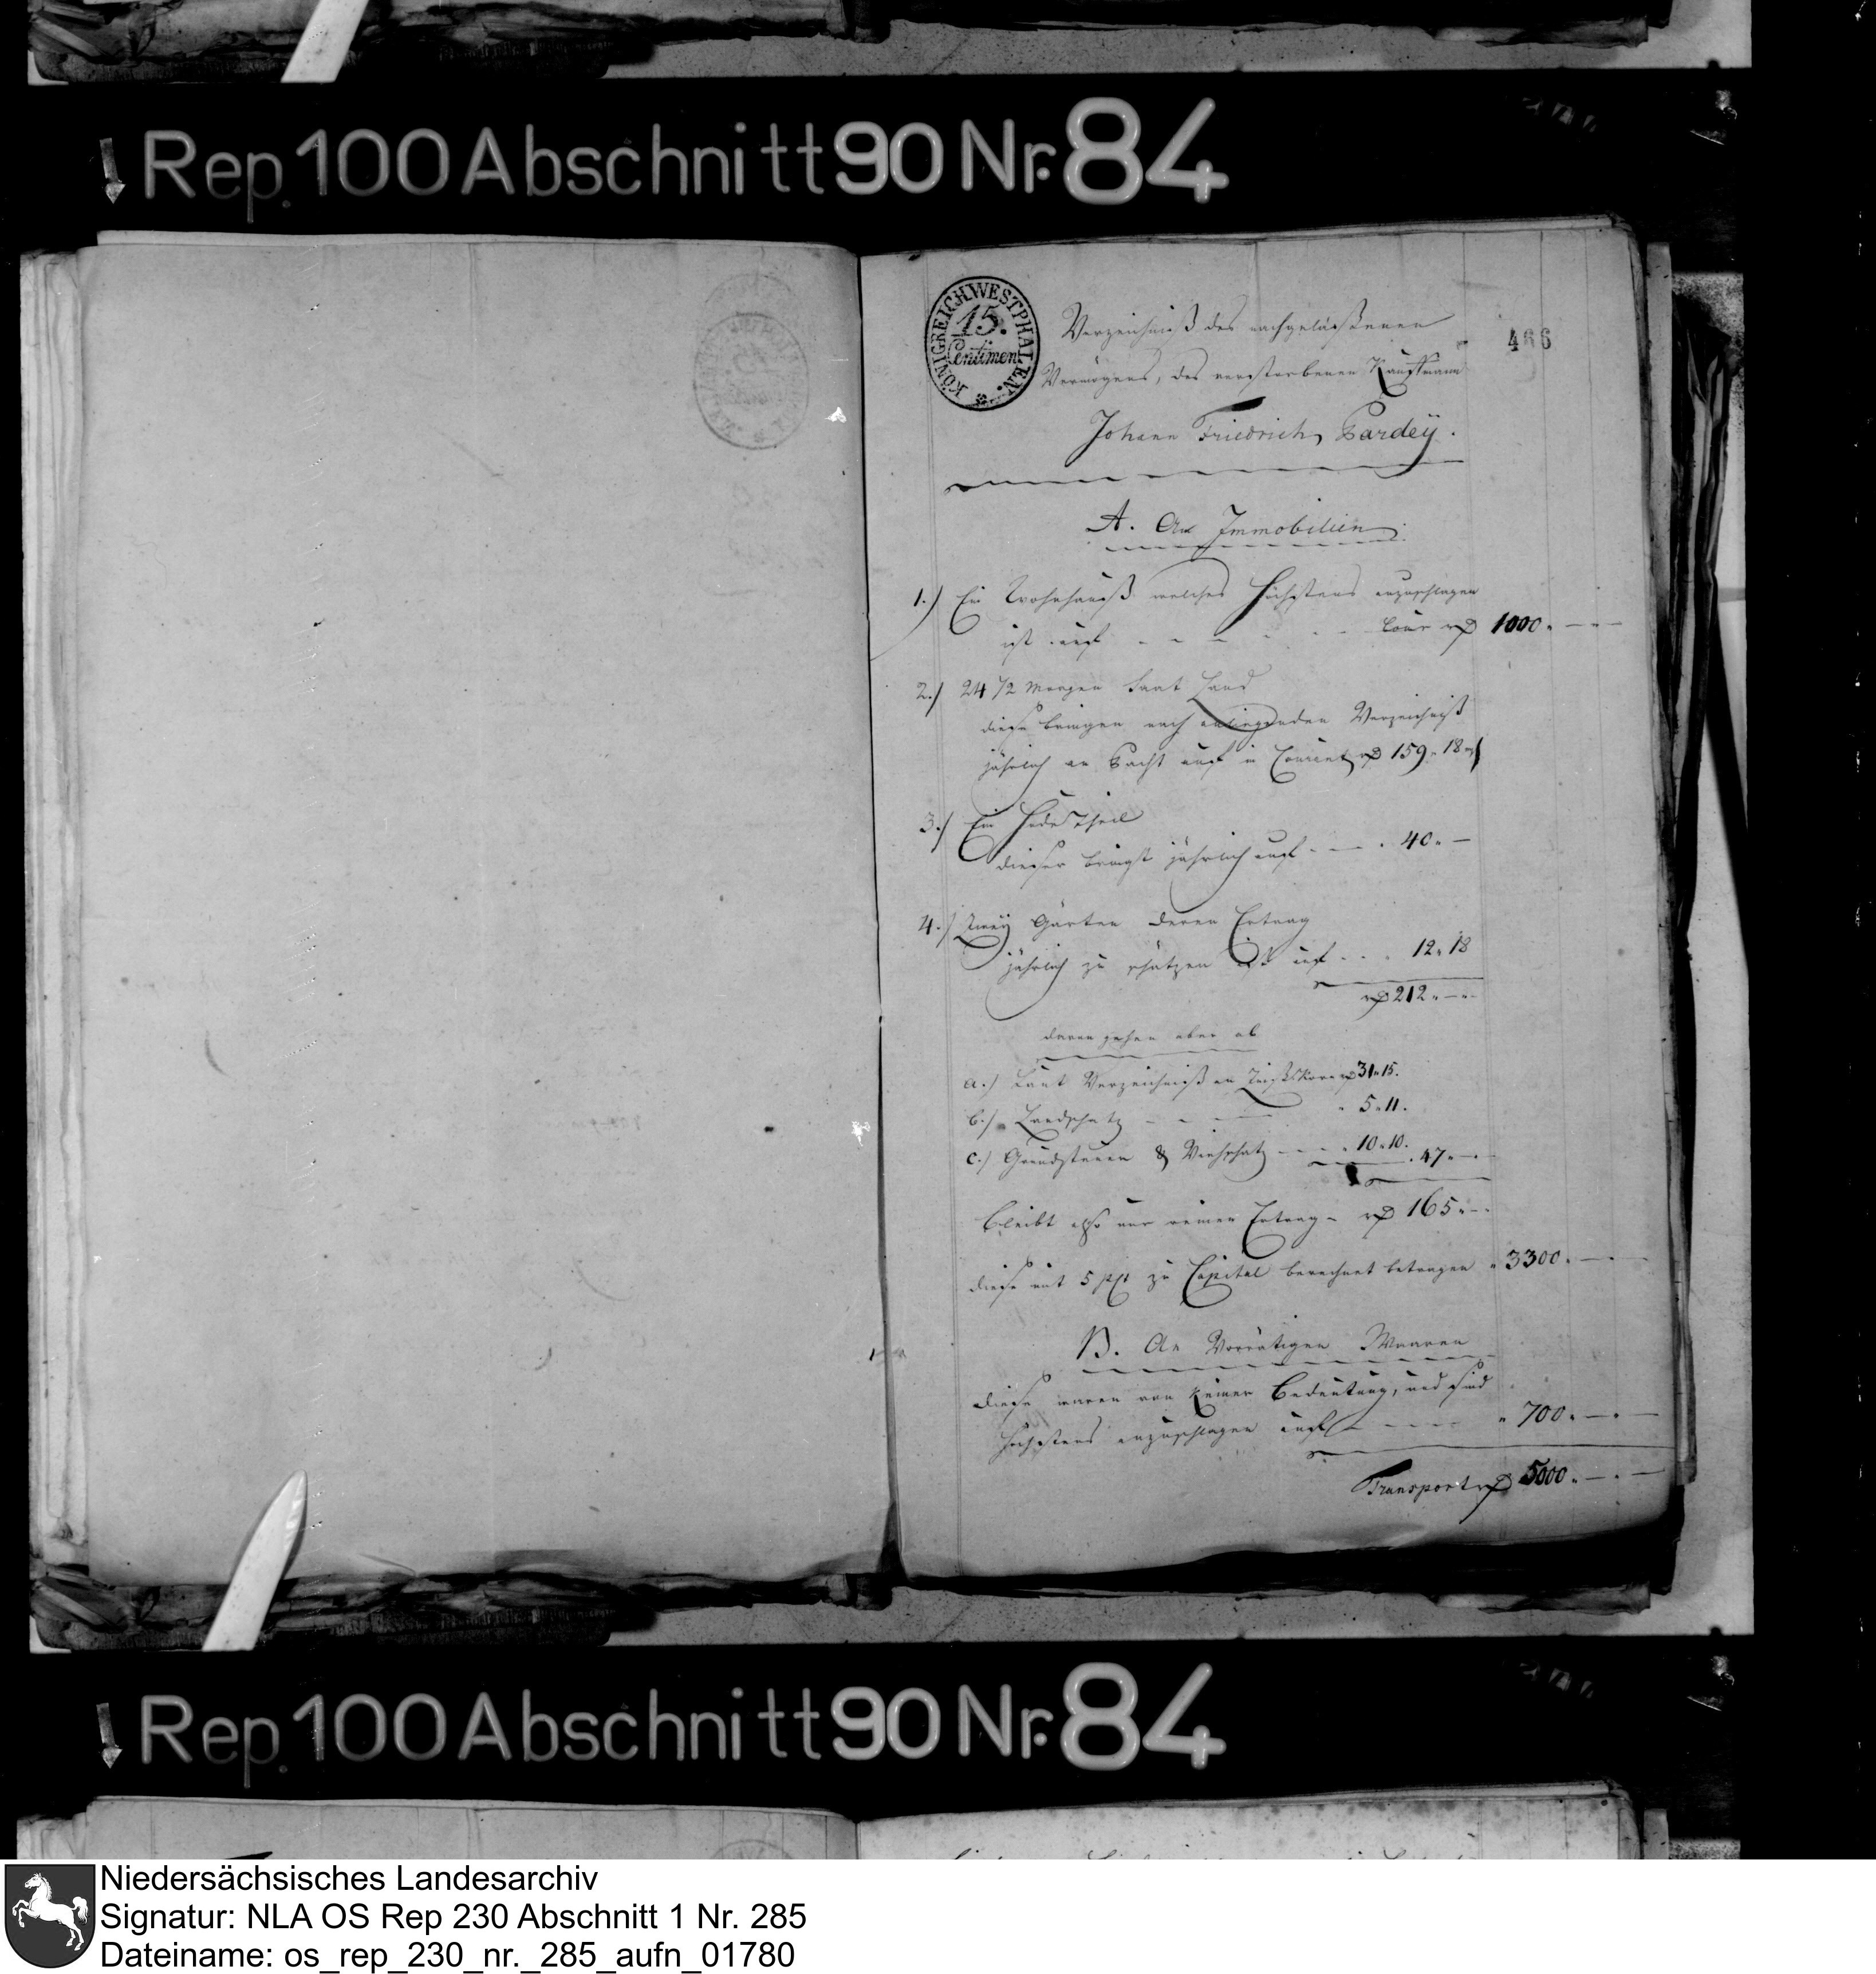 Rep. 100 Abschnitt 90 Nr. 84
KÖNIGREICH WESTPHALEN.
15.
Centimen
466
Verzeichniß des nachgelaßenen
Vermögens, des verstorbenen Kauffmann
Johann Friedrich Pardeÿ.
A. An Immobilien.
1.) Ein Wohnhauß welches höchstens anzuschlagen
ist auf - - - - - Cour rℳ 1000. — —
2.) 24 1/2 Morgen Saat Land
diese bringen nach anliegenden Verzeichniß
jährlich an Pacht auf in Courant rℳ 159. 18
3.) Ein Theil
dieser bringt jährlich auf - — . 40. —
4.) Zweÿ Gärten deren Ertrag
jährlich zu schätzen ist auf . . . 12. 18
rℳ 212. — -
davon gehen aber ab
a.) Laut Verzeichniß an Korn rℳ 31. 15.
b.) Landschatz - - — " 5. 11.
c.) Grundsteuer & Viehschatz - - - " 10. 10. . 47. —
bleibt also nur reiner Ertrag - rℳ 165. - -
diese mit 5 pCt zu Capital berechnet betragen " 3300. — -
B. An Vorrätigen Waaren
diese waren von keiner Bedeutung, und sind
höchstens anzuschlagen auf - - - - " 700. — . —
Transport rℳ 5000. — . —
Rep. 100 Abschnitt 90 Nr. 84
Niedersächsisches Landesarchiv
Signatur: NLA OS Rep 230 Abschnitt 1 Nr. 285
Dateiname: os_rep_230_nr._285_aufn_01780